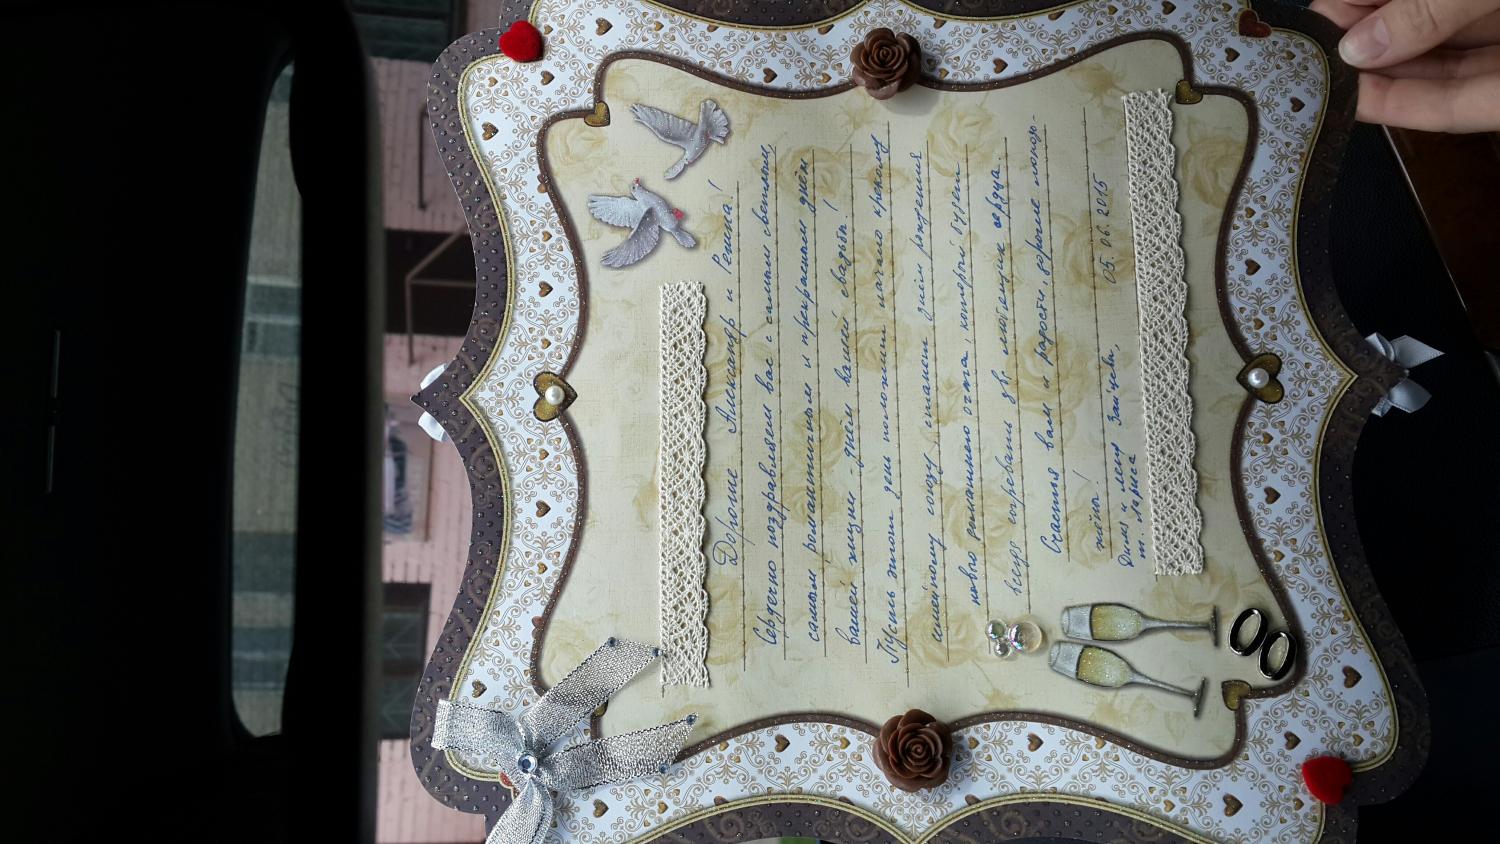 Дорогие Александр и Регина!
Сердечно поздравляем вас с самым светлым,
самым романтичным и прекрасным днём
вашей жизни - днём вашей свадьбы!
Пусть этот день положит начало крепкому
семейному союзу, станет днём рождения
нового домашнего очага, который будет
всегда согревать два любящих сердца.
Счастья вам и радости, дорогие молодо-
жёны!
Дима и Лена Зайцевы, 05.06.2015
т. Лариса